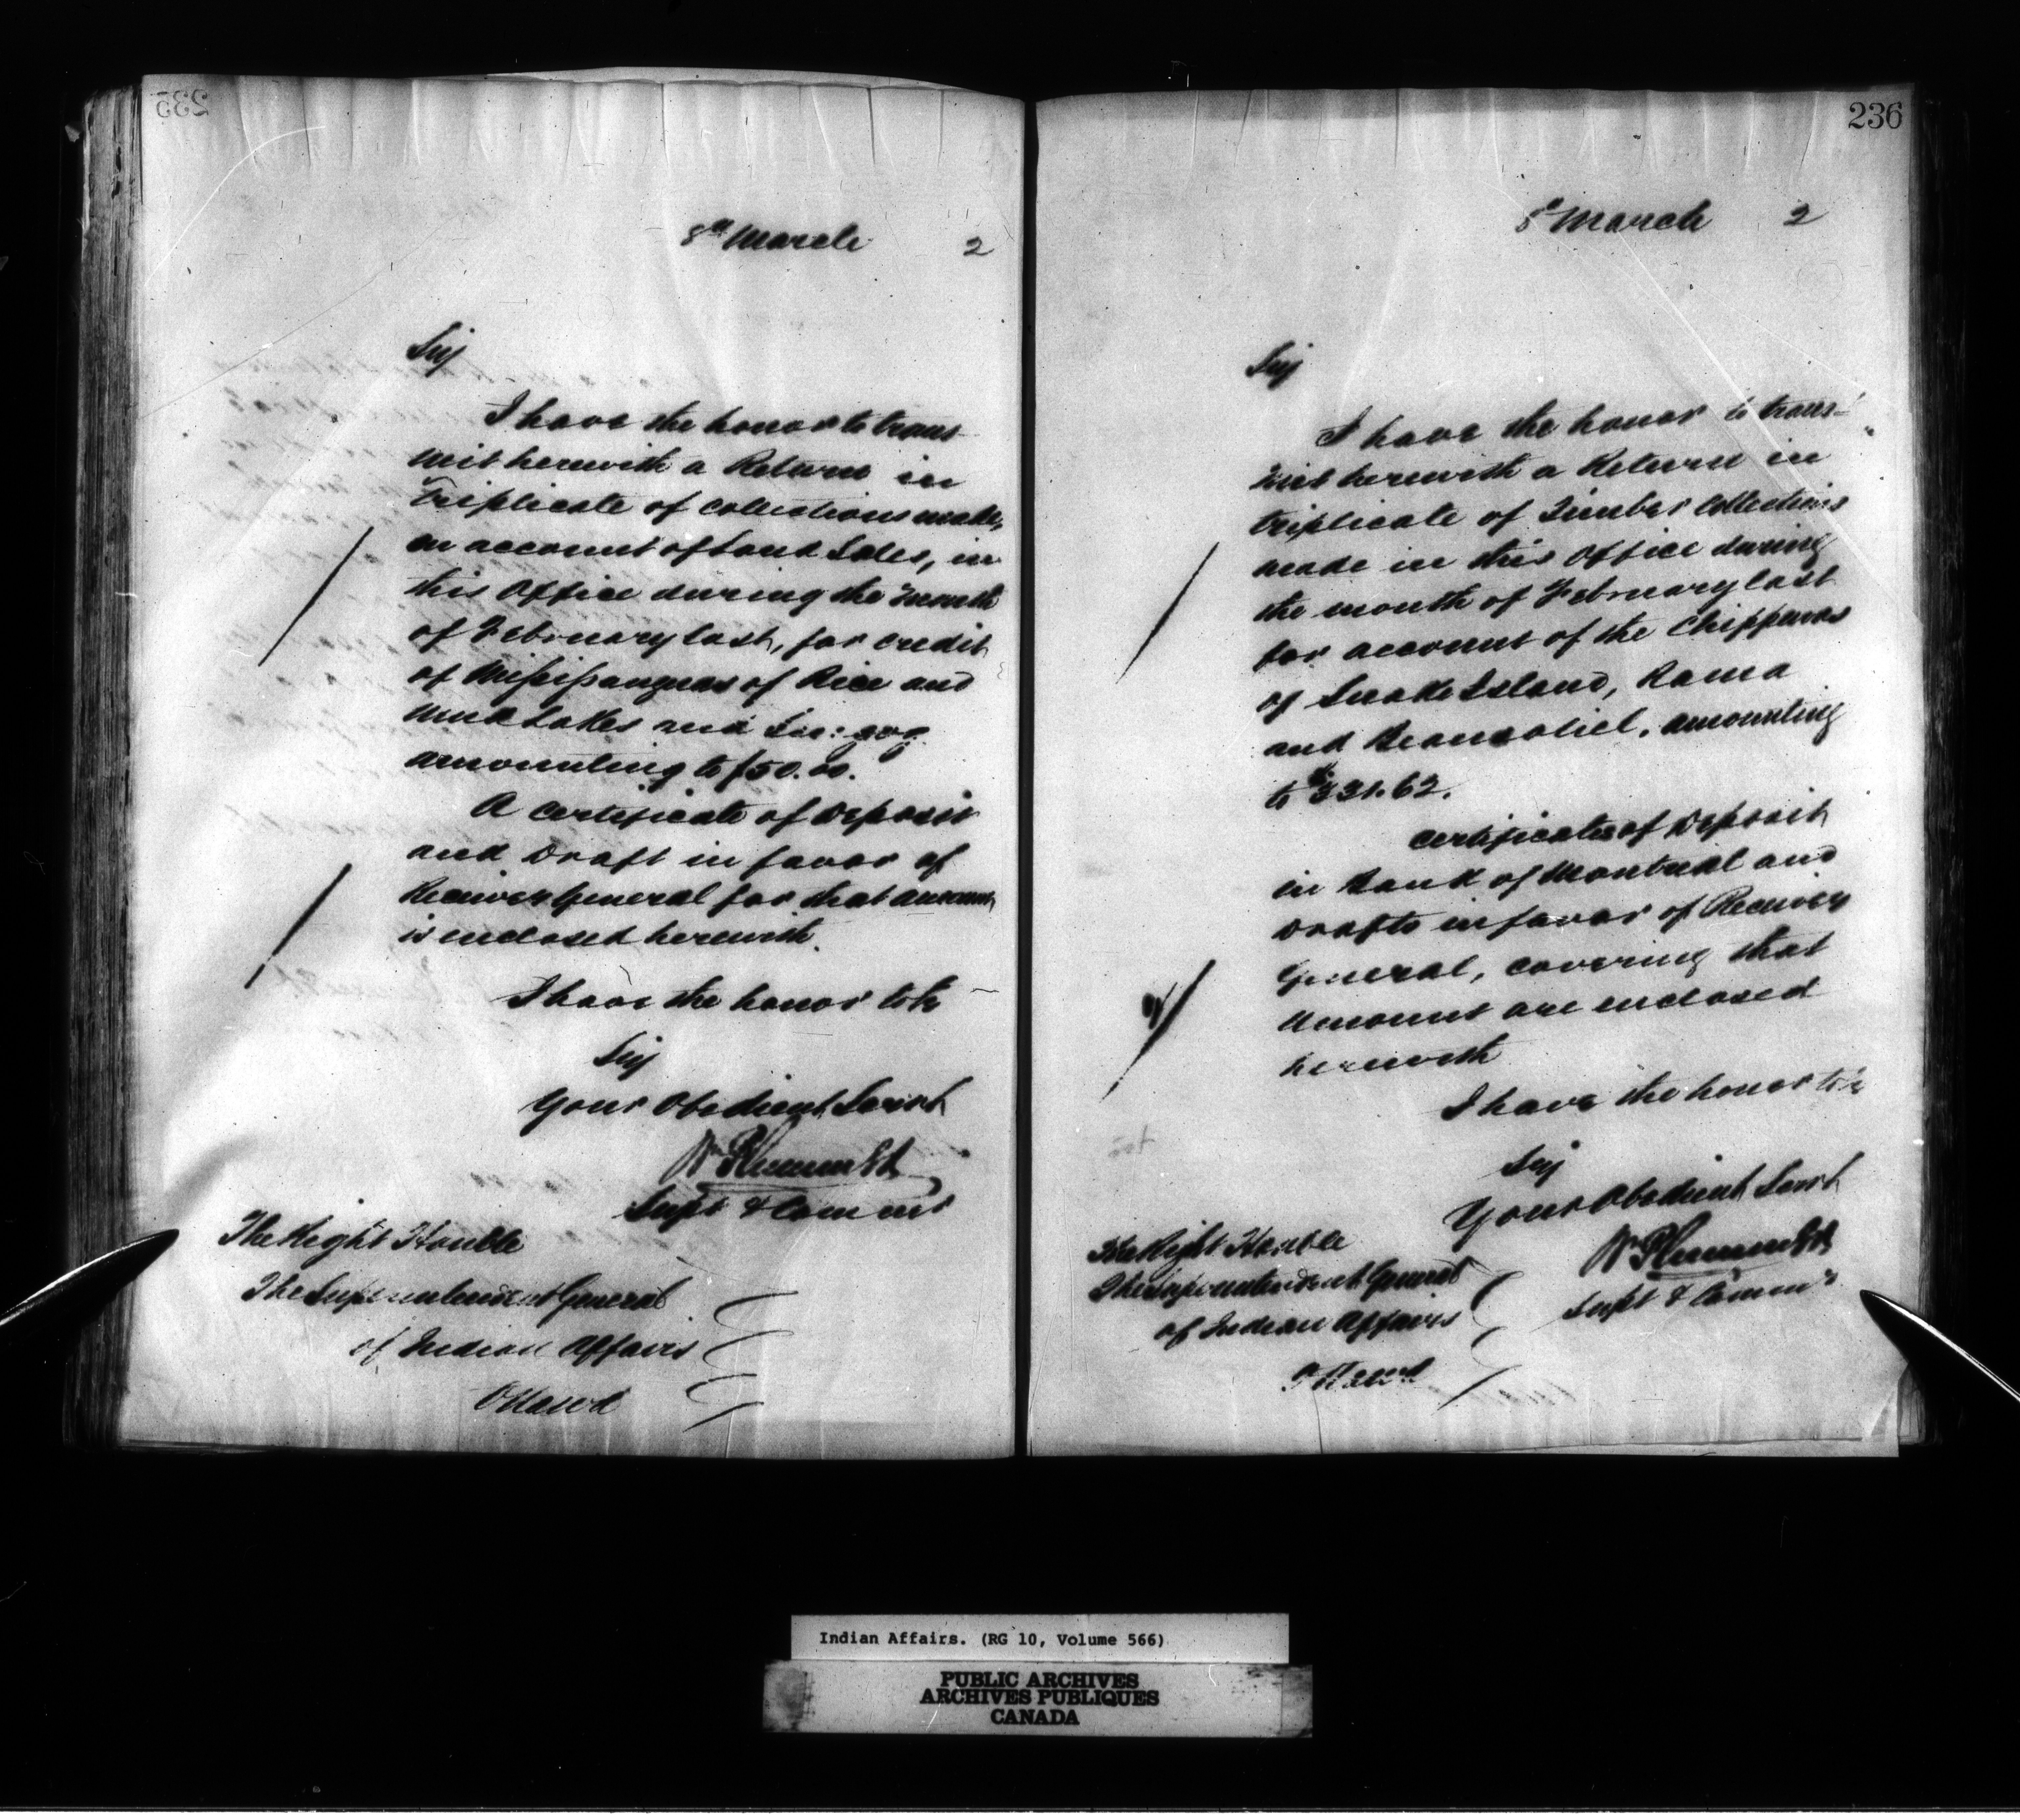 235
8th March 2
Sir
I have the honor to trans
mit herewith a Return in
triplicate of collections made,
on account of Land Sales, in
this Office during the month
of February last, for credit
of Mississaugas of Rice and
Mud Lakes and
amounting to $50.00.
A certificate of Deposit
and Draft in favor of
Receiver General for that amount
is enclosed herewith.
I have the honor to be
Sir
Your Obedient Servt
Wm Plummer
Supt & Commr
The Right Honble
The Superintendent General
of Indian Affairs
Ottawa
236
8th March 2
Sir
I have the honor to trans-
mit herewith a Return in
triplicate of Timber Collections
made in this Office during
the month of February last
for account of the Chippewas
of Snake Island, Rama
and Beausoliel, amounting
to $331.62.
Certificates of Deposit
in Bank of Montreal and
Drafts in favor of Receiver
General, covering that
Amount are enclosed
herewith
I have the honor to be
Sir
Your Obedient Servt
Wm Plummer
Supt & Commr
The Right Honble
The Superintendent General
of Indian Affairs
Ottawa
Indian Affairs. (RG 10, Volume 566)
PUBLIC ARCHIVES
ARCHIVES PUBLIQUES
CANADA